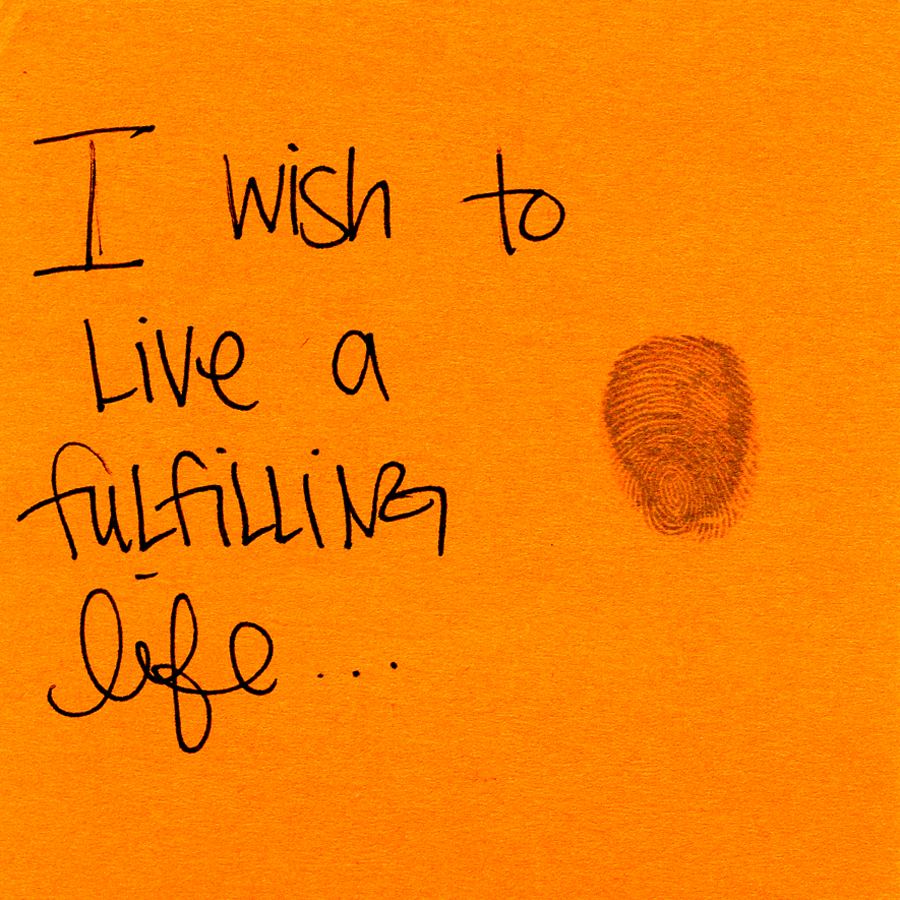 I wish to
Live a
fulfilling
life...